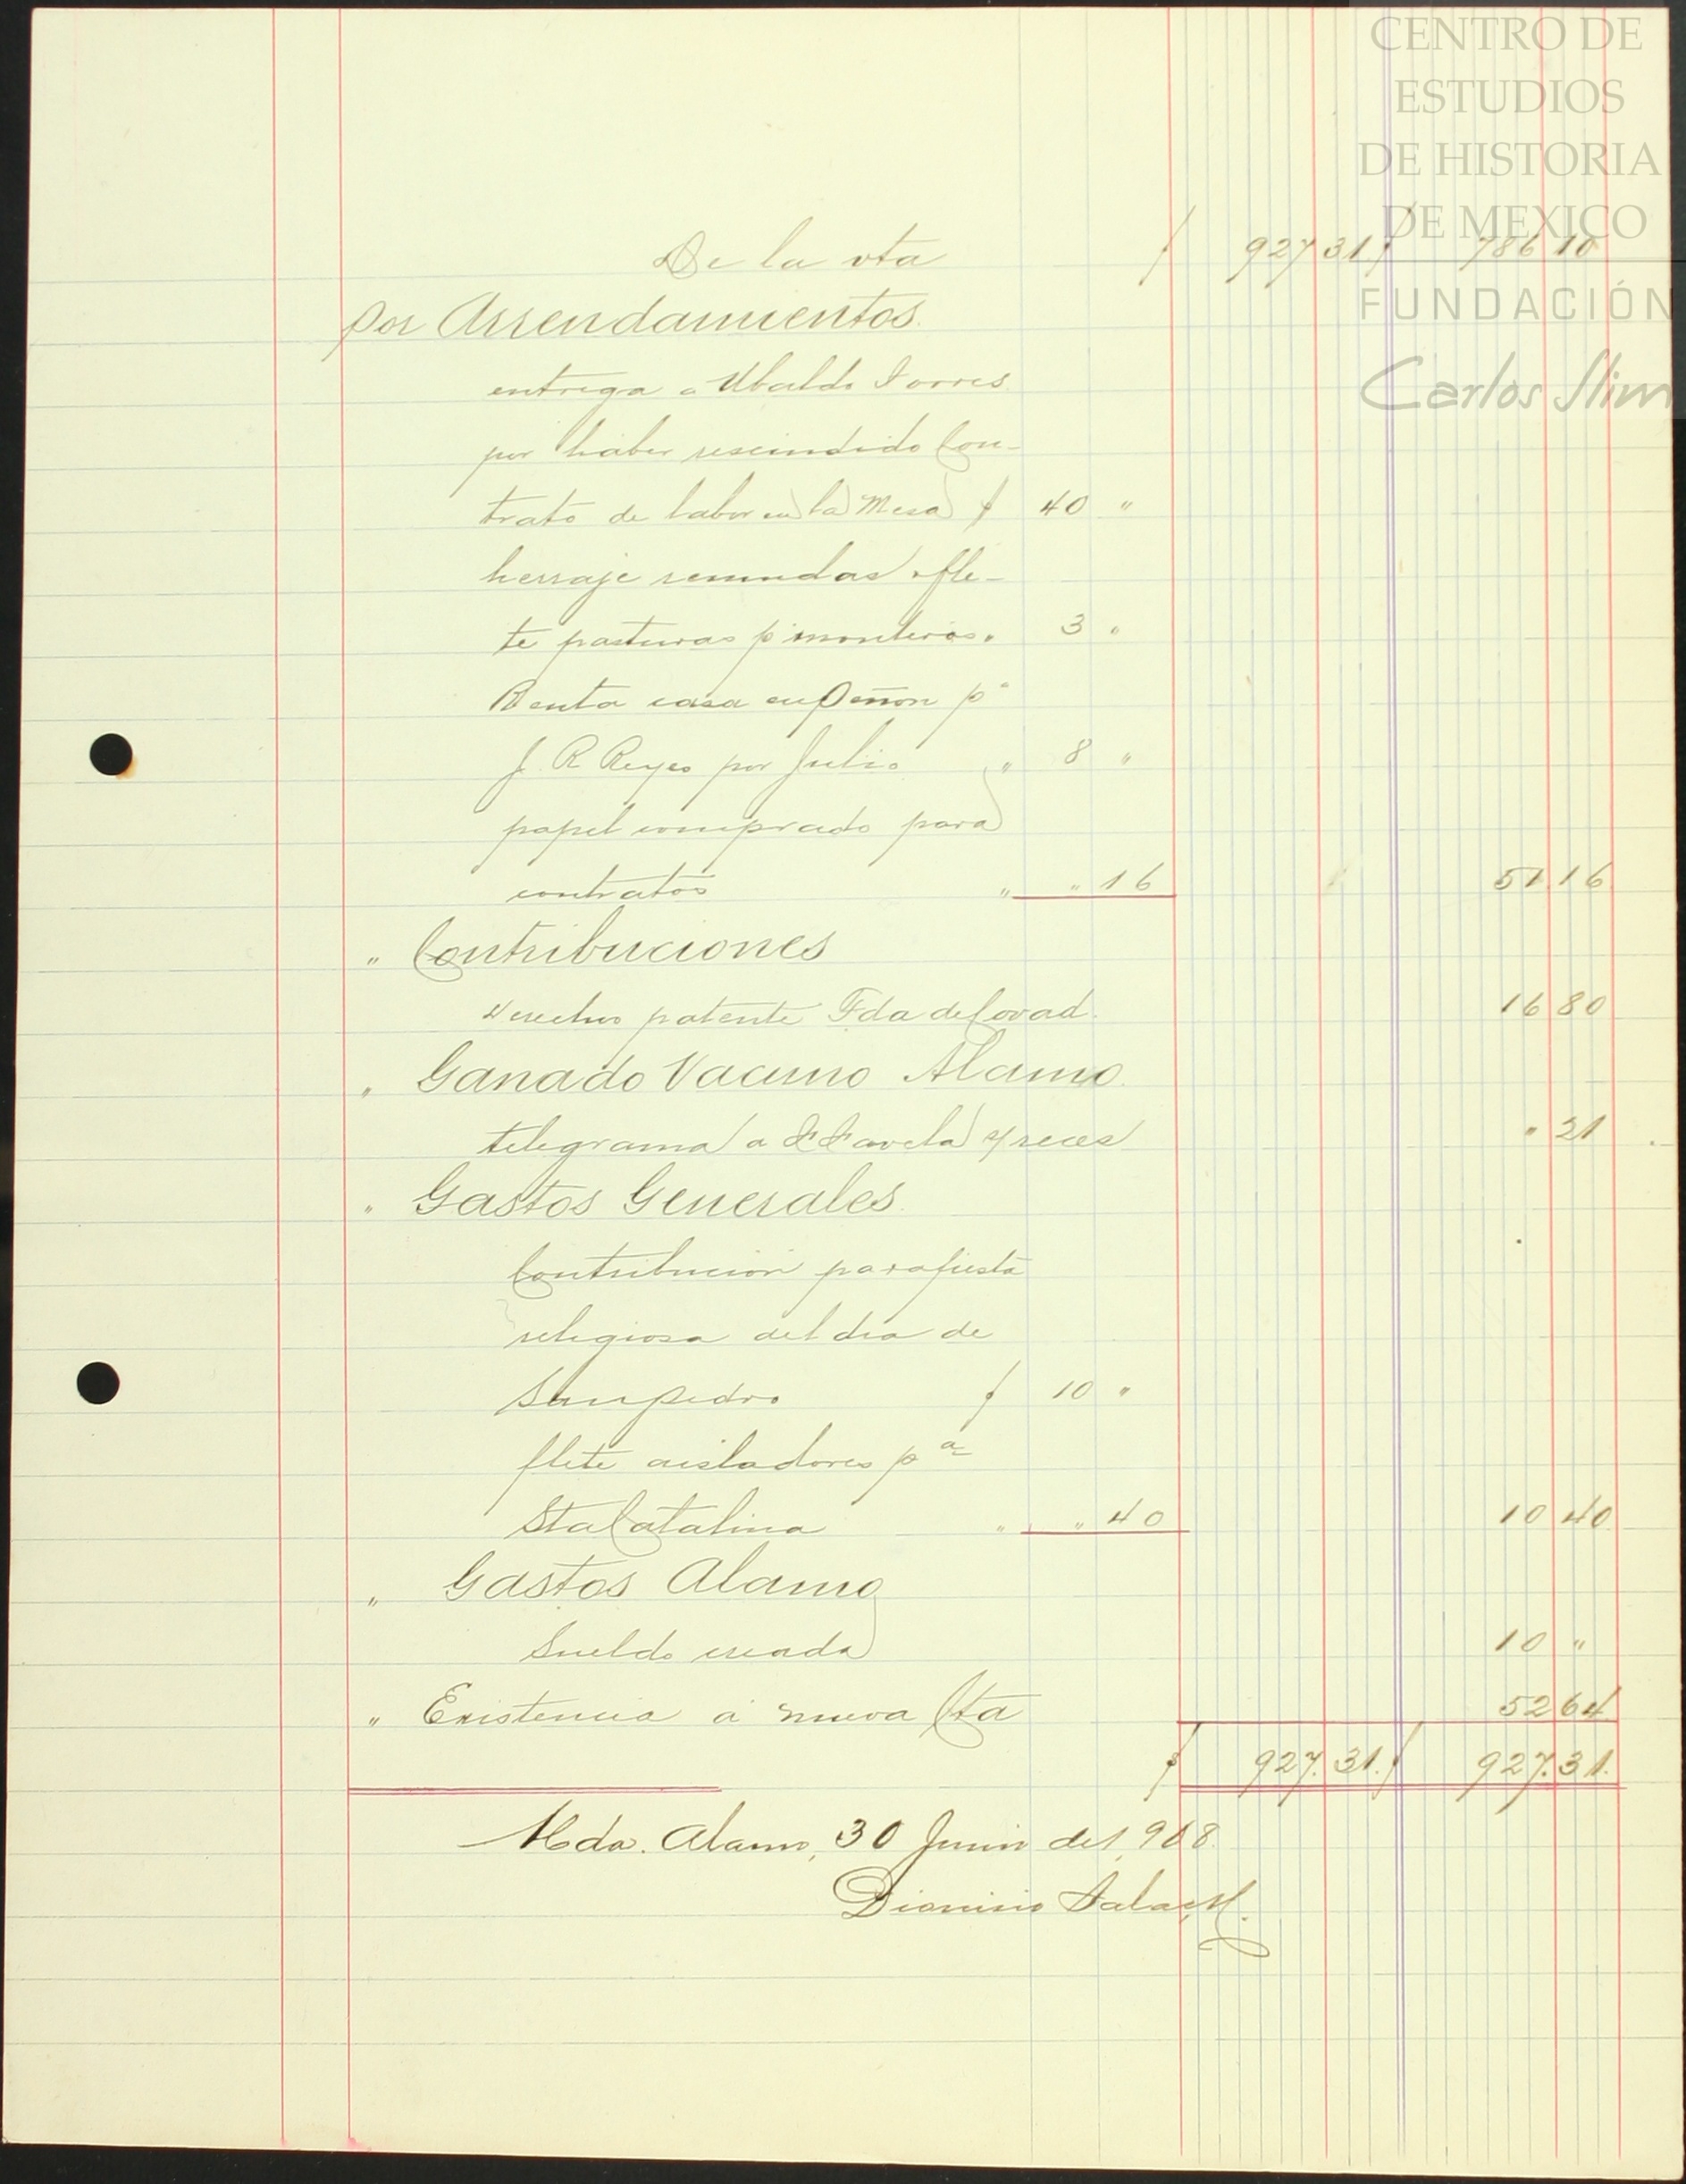 CENTRO DE
ESTUDIOS
DE HISTORIA
DE MEXICO
FUNDACIÓN
Carlos Slim
De la vta $ 927 31 $ 786 10
por Arrendamientos.
entrega a Ubaldo Torres
por haber rescindido Con-
trato de labor en la Mesa $ 40 "
herraje remudas fle-
te pasturas p monteros " 3 "
Renta casa en Peñon pª
J. R Reyes por Julio " 8 "
papel comprado para
contratos " " 16 51 16
" Contribuciones
derechos patente Fda de 16 80
" Ganado Vacuno Alamo.
telegrama a s/ reces " 21
" Gastos Generales.
Contribucion para fiesta
religiosa del dia de
San Pedro $ 10 "
flete aisladores pª
Sta Catalina " " 40 10 40
" Gastos Alamo
Sueldo criada 10 "
" Existencia á nueva Cta 52 64
$ 927.31. $ 927.31.
Hda. Alamo, 30 Junio de 1,908.
Dionisio